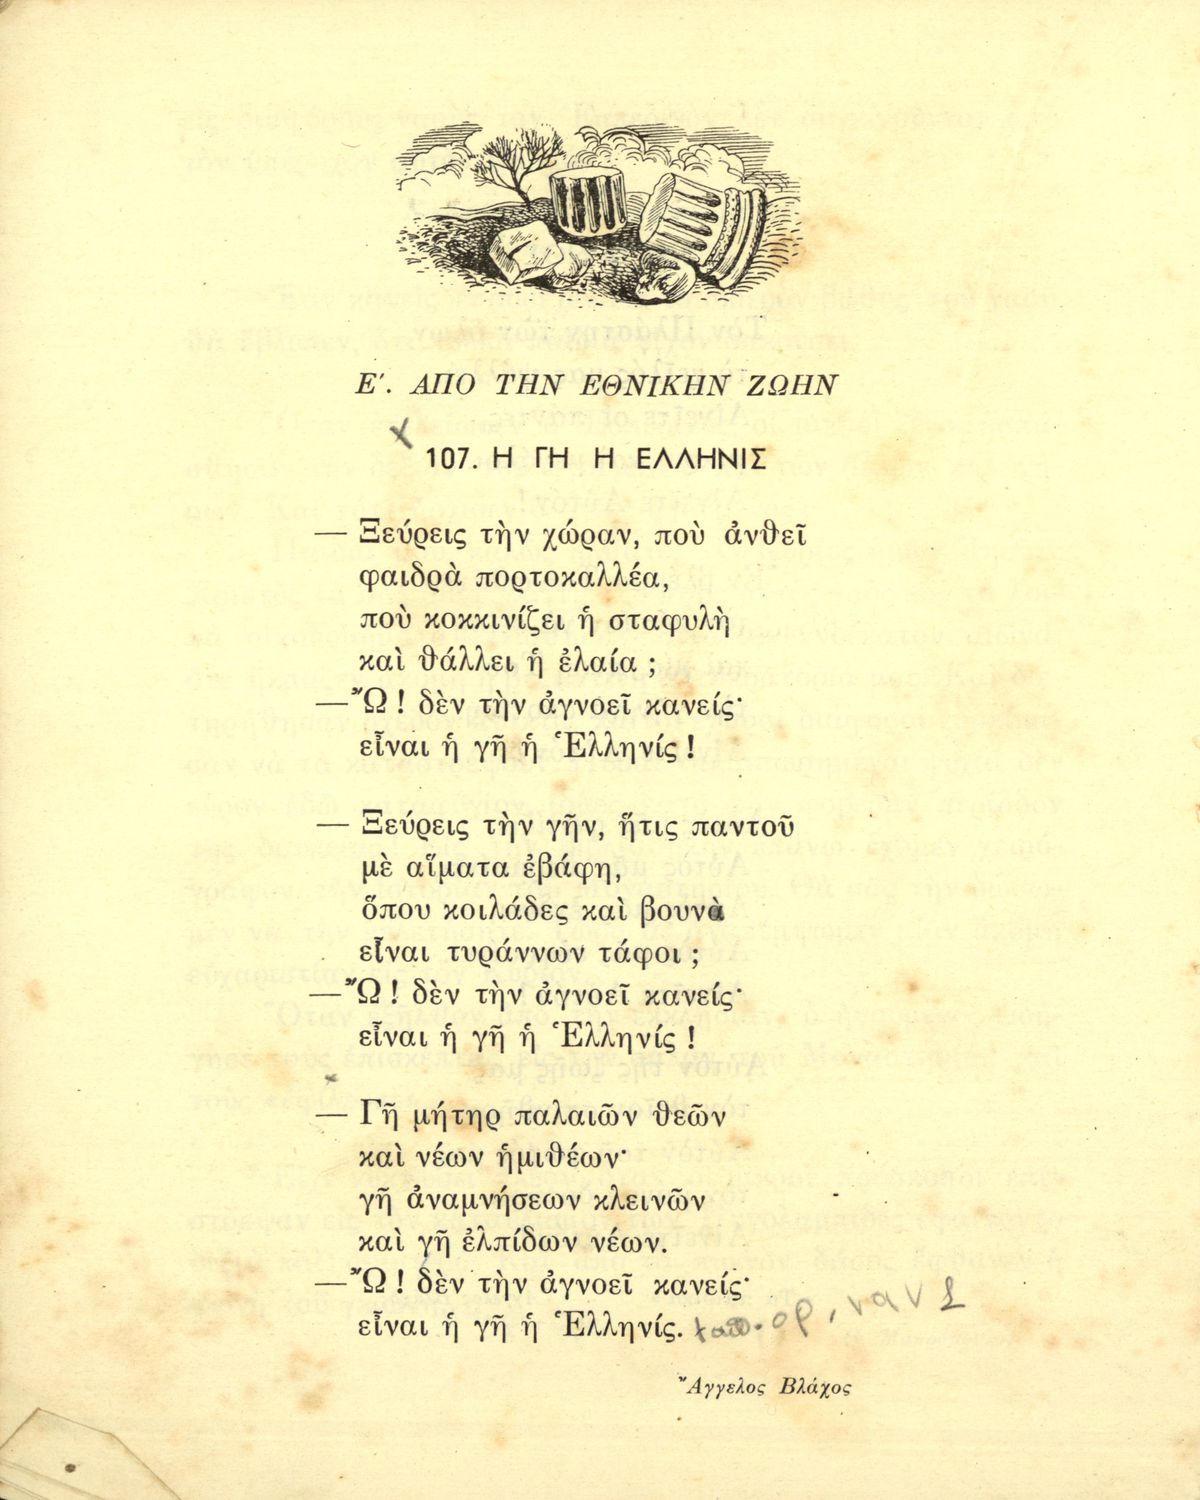 Ε'. ΑΠΟ ΤΗΝ ΕΘΝΙΚΗΝ ΖΩΗΝ
107. Η ΓΗ Η ΕΛΛΗΝΙΣ
— Ξεύρεις τὴν χώραν, ποὺ ἀνθεῖ
φαιδρὰ πορτοκαλλέα,
ποὺ κοκκινίζει ἡ σταφυλὴ
καὶ θάλλει ἡ ἐλαία ;
—Ὤ ! δὲν τὴν ἀγνοεῖ κανείς·
εἶναι ἡ γῆ ἡ Ἑλληνίς !
— Ξεύρεις τὴν γῆν, ἥτις παντοῦ
μὲ αἵματα ἐβάφη,
ὅπου κοιλάδες καὶ βουνὰ
εἶναι τυράννων τάφοι ;
—Ὤ ! δὲν τὴν ἀγνοεῖ κανείς·
εἶναι ἡ γῆ ἡ Ἑλληνίς !
— Γῆ μήτηρ παλαιῶν θεῶν
καὶ νέων ἡμιθέων·
γῆ ἀναμνήσεων κλεινῶν
καὶ γῆ ἐλπίδων νέων.
—Ὤ ! δὲν τὴν ἀγνοεῖ κανείς·
εἶναι ἡ γῆ ἡ Ἑλληνίς.
Ἄγγελος Βλάχος